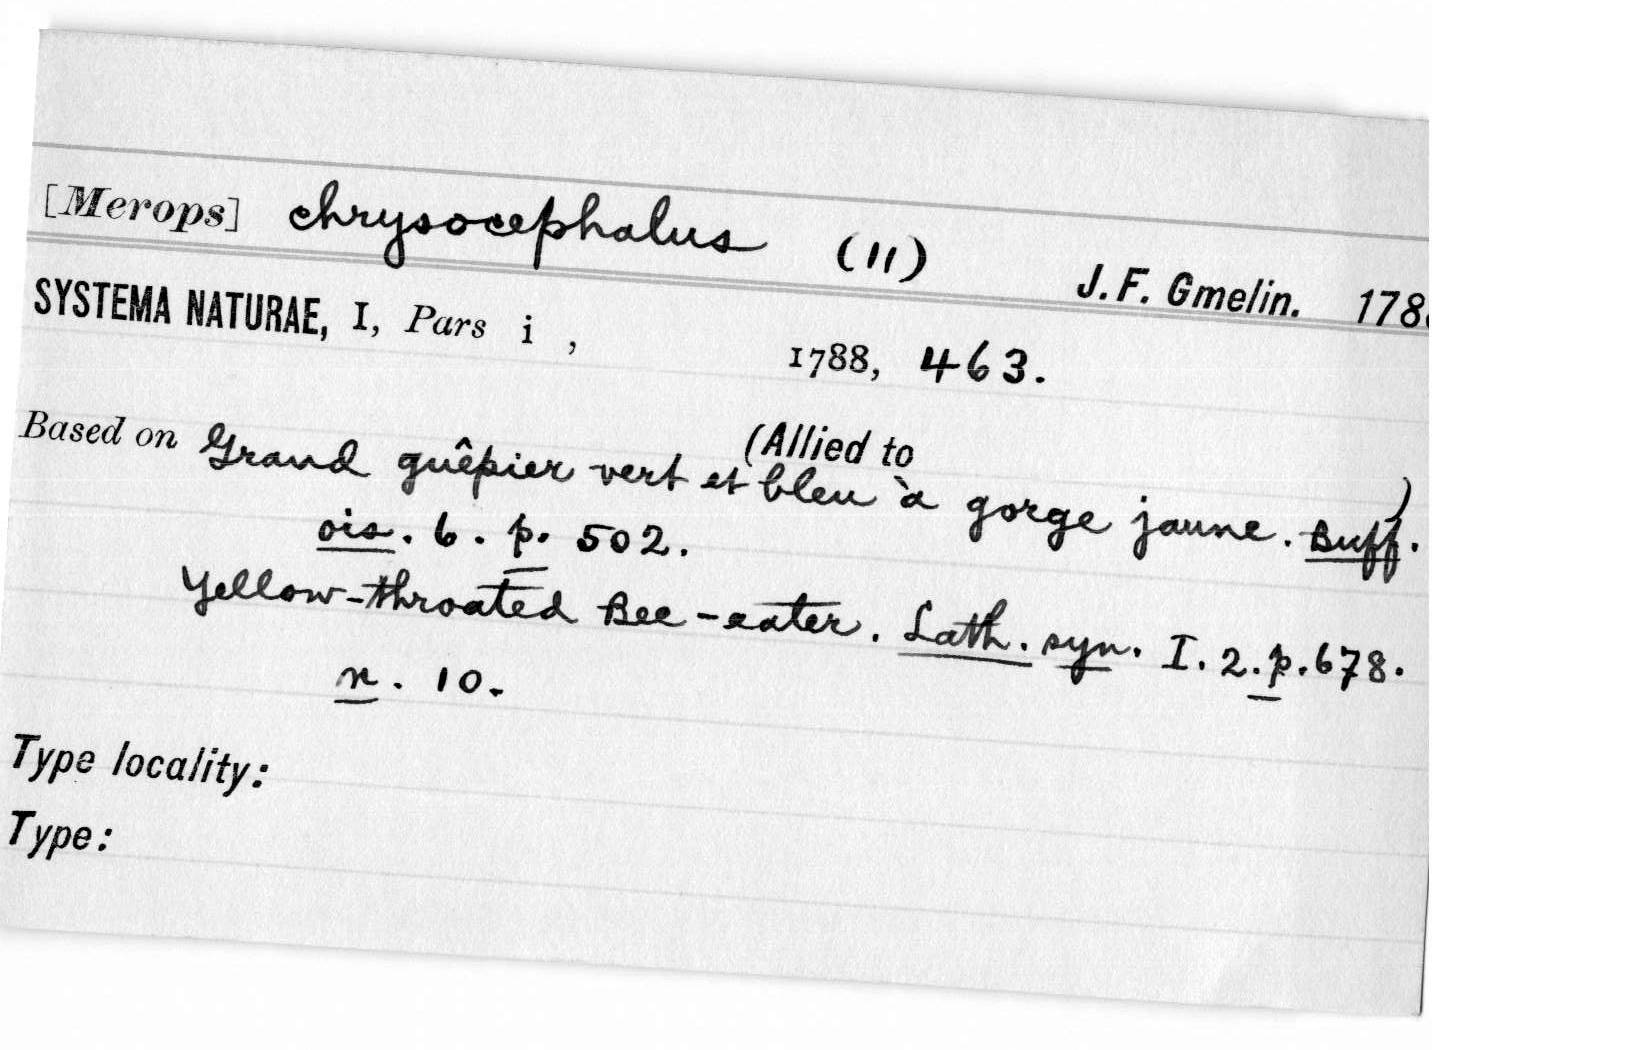 [Merops] chrysocephalus (11)
J. F. Gmelin. 178
SYSTEMA NATURAE, I, Pars i , 1788, 463.
(Allied to )
Based on Grand guêpier vert et bleu à gorge jaune. Buff.
ois. 6. p. 502.
Yellow-throated Bee-eater. Lath. syn. I. 2. p. 678.
n. 10.
Type locality:
Type: